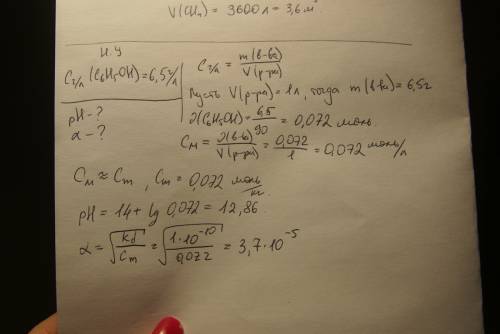 V(CH₄) = 3600 л = 3,6 м³
Н.У
C г/л (C₆H₅OH) = 6,5 г/л
pH - ?
α - ?
C г/л = m(в-ва) / V(р-ра)
Пусть V(р-ра) = 1л, тогда m(в-ва) = 6,5г
ν(C₆H₅OH) = 6,5/90 = 0,072 моль.
Cм = ν(в-ва)/V(р-ра) = 0,072/1 = 0,072 моль/л
Cм ≈ Cm , Cm = 0,072 моль/кг
pH = 14 + lg 0,072 = 12,86
α = √(Kd/Cm) = √(1·10⁻¹⁰/0,072) = 3,7·10⁻⁵